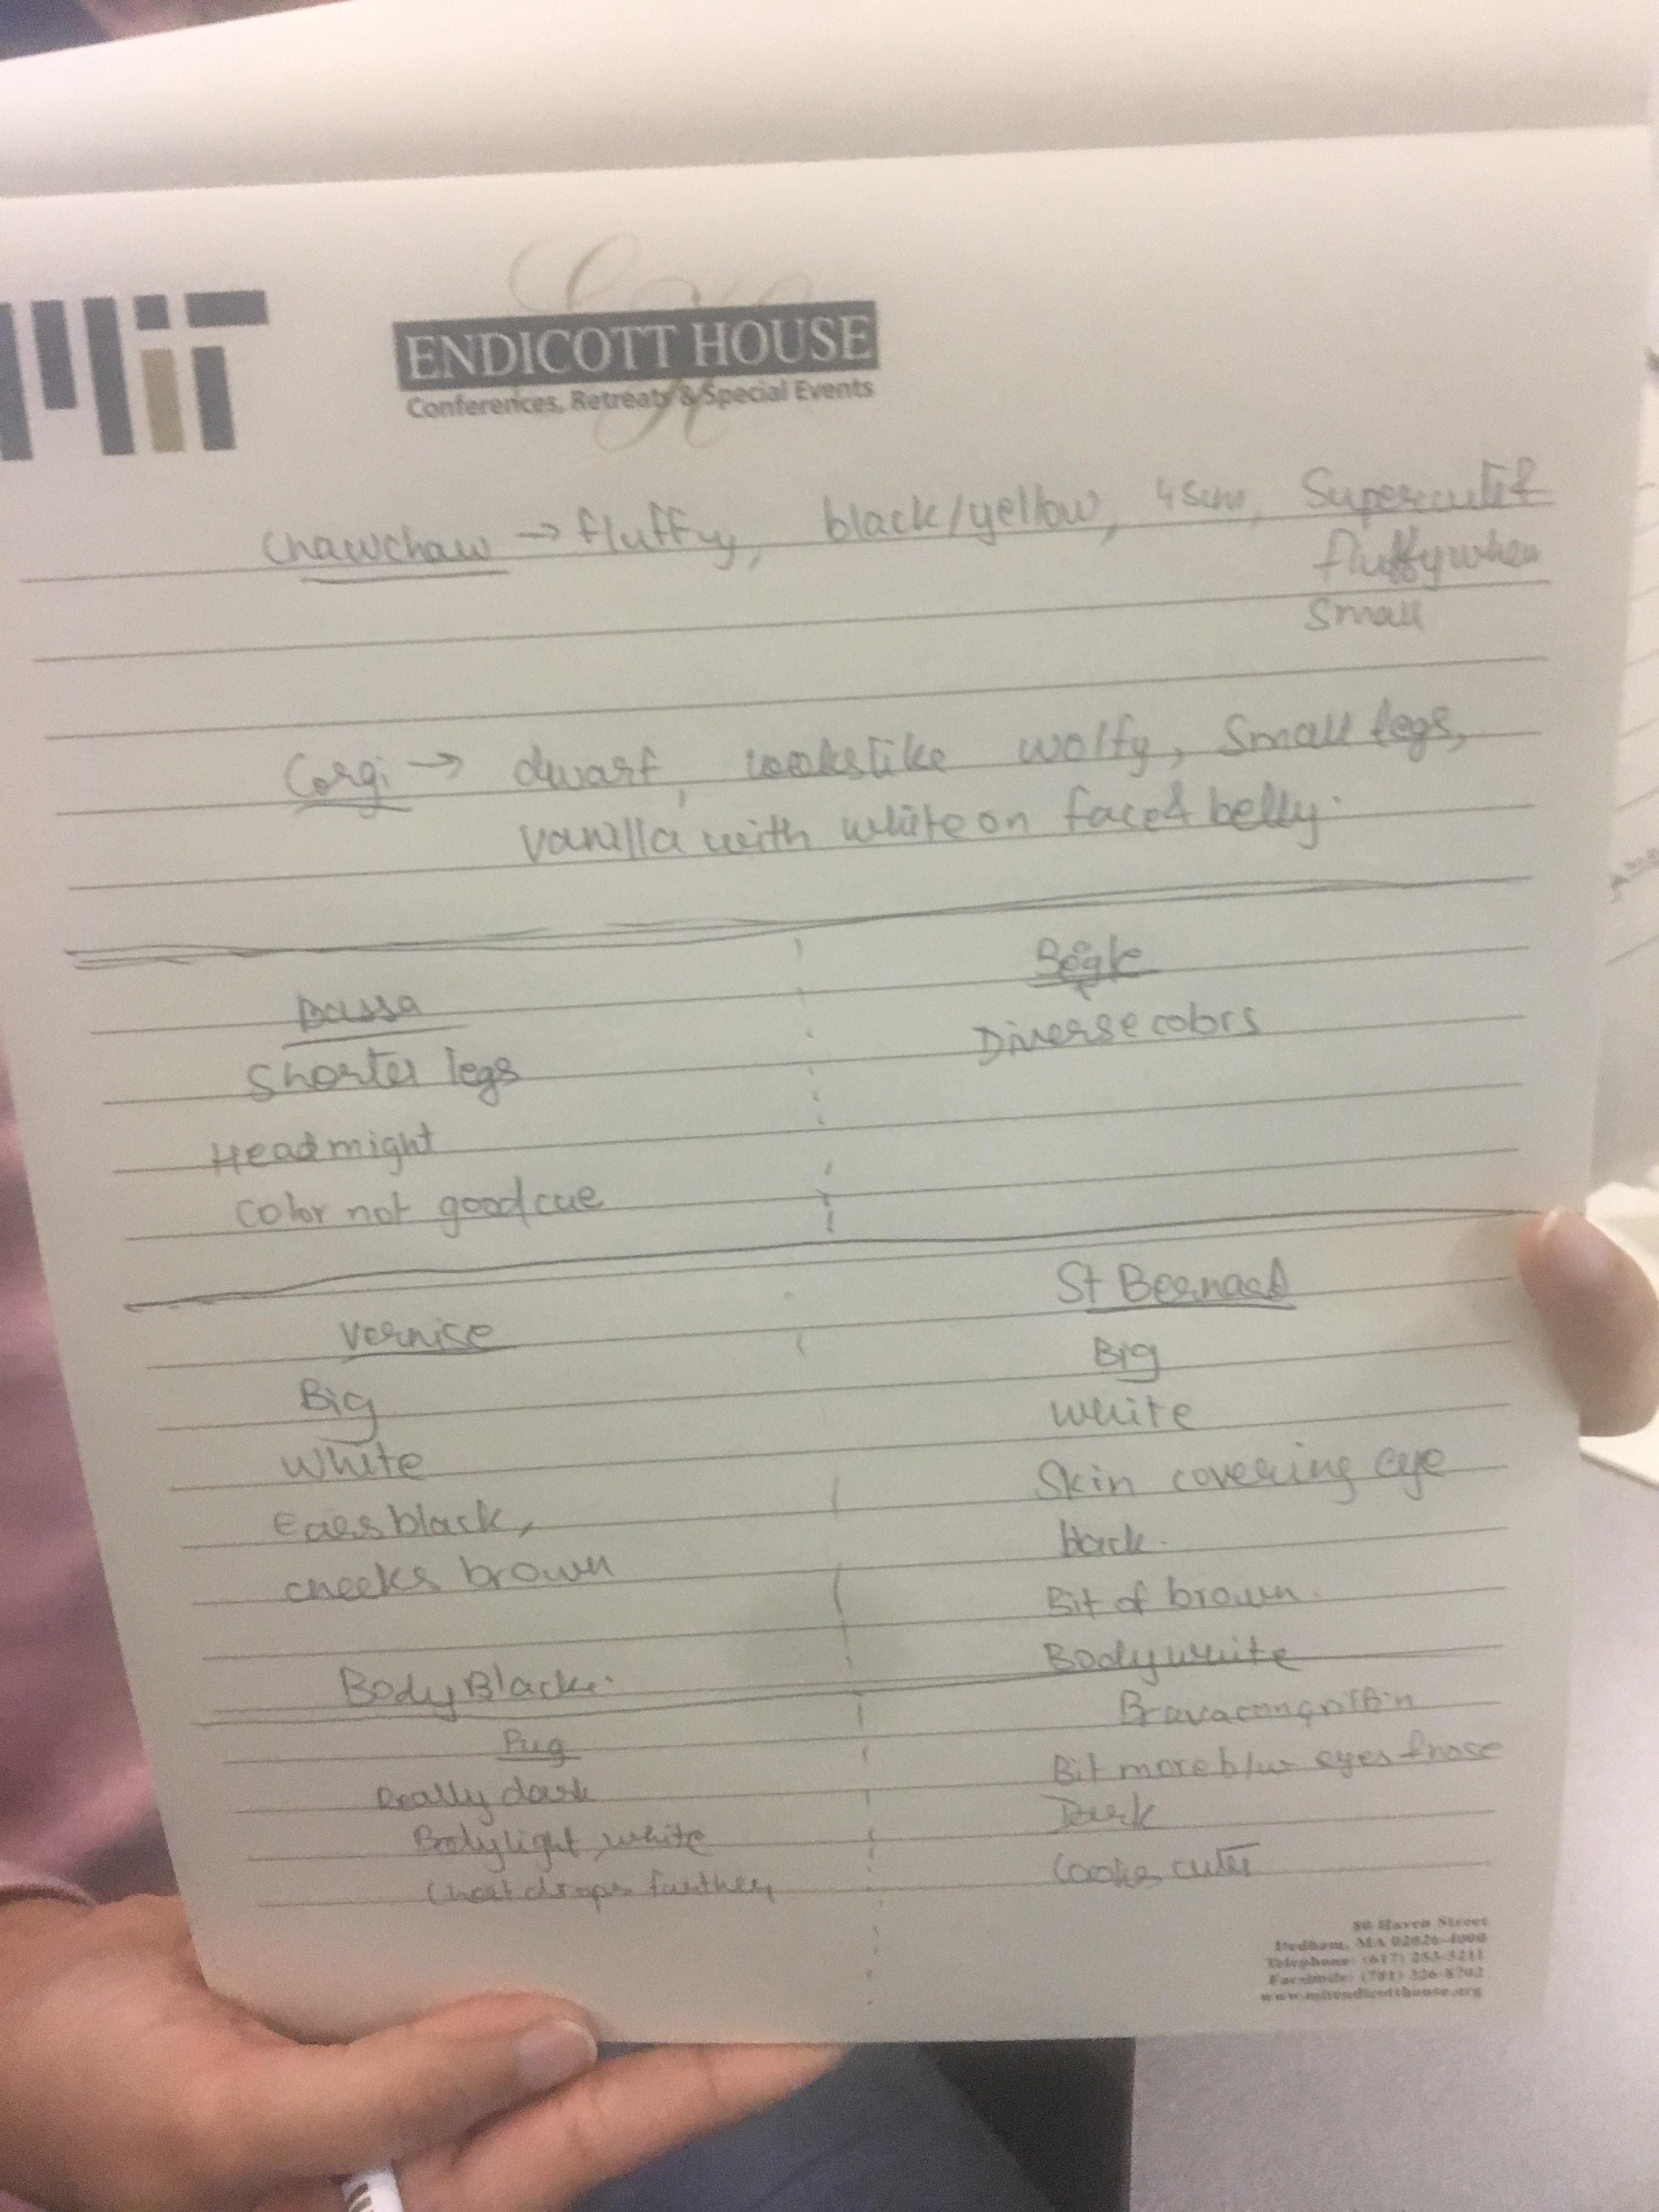 MIT
ENDICOTT HOUSE
Conferences, Retreats & Special Events
Chawchaw → fluffy, black/yellow, 45cm, Supercute &
fluffy when
Small
Corgi → dwarf, looks like wolfy, Small legs,
vanilla with white on face & belly.
Bassa
Shorter legs
Head might
Color not good cue
Begle
Diverse colors
Vernise
Big
White
Ears black,
cheeks brown
Body Black.
St Bernard
Big
White
Skin covering eye
black.
Bit of brown.
Body white
Pug
Really dark
Body light, white
Chest drops further
Bit more b/w eyes & nose
Dark
Looks cuter
80 Haven Street
Dedham, MA 02026-4000
Telephone: (617) 253-5211
Facsimile: (781) 326-8702
www.mitendicotthouse.org